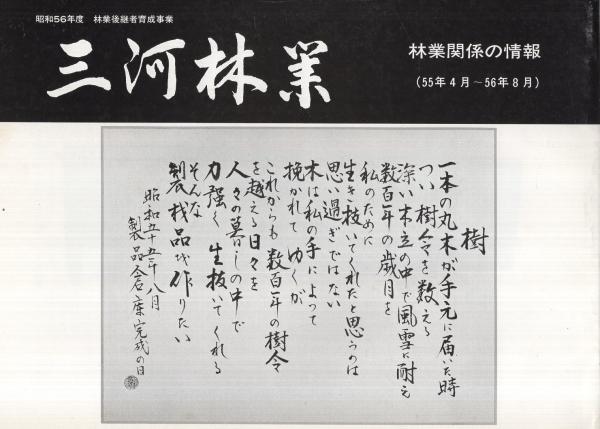 昭和56年度 林業後継者育成事業
三河林業
林業関係の情報
(55年4月~56年8月)
樹
一本の丸木が手元に届いた時
つい樹令を数える
深い木立の中で風雪に耐え
数百年の歳月を
私のために
生き抜いてくれたと思うのは
思い過ぎではない
木は私の手によって
挽かれてゆくが
これからも数百年の樹令
を越える日々を
人々の暮しの中で
力強く生抜いてくれる
そんな
製材品を作りたい
昭和五十五年八月
製品倉庫完成の日